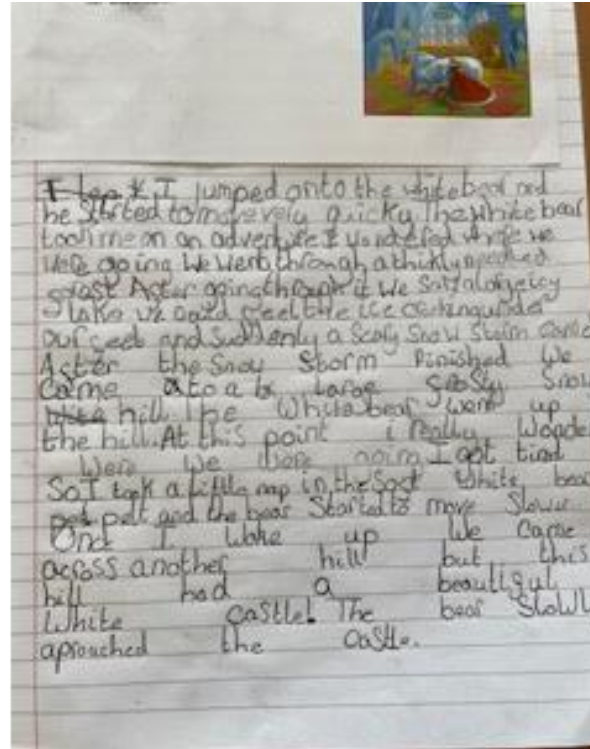 I jumped onto the white bear and
he Started to move very quicky. The white bear
took me on an adventure I wondered where we
were going We went through a thikly
Aster going through it We
lake we could feel the ice under
our feet and Suddenly a Scary Snow Storm came
Aster the Snow Storm Finished We
Came to a Large Snow
hill. The White bear went up
the hill. At this point i really Wonde
Were We I got tired
So I took a little nap in the Soft White bear
pelt and the bear Started to move Slow
Once I Woke up We Came
across another hill but this
hill had a beautiful
White Castle! The bear Slowl
aprouched the Castle.